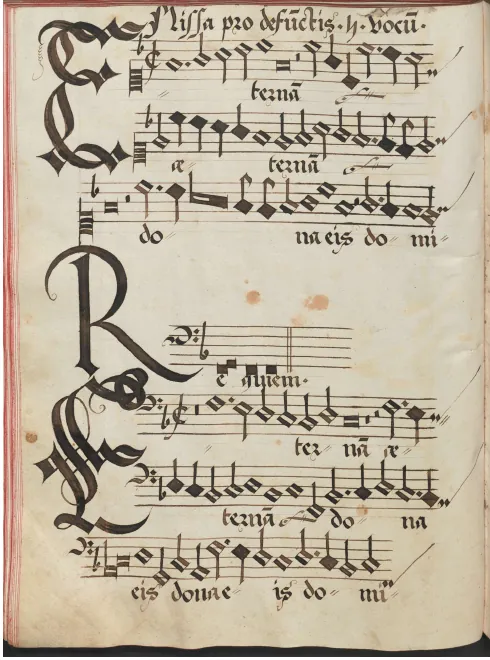 Missa pro defūctis. 4. vocū.
ternā
æ ternā
do na eis do mi
R
e quiem.
ter nā æ
ternā do na
eis dona e is do mi